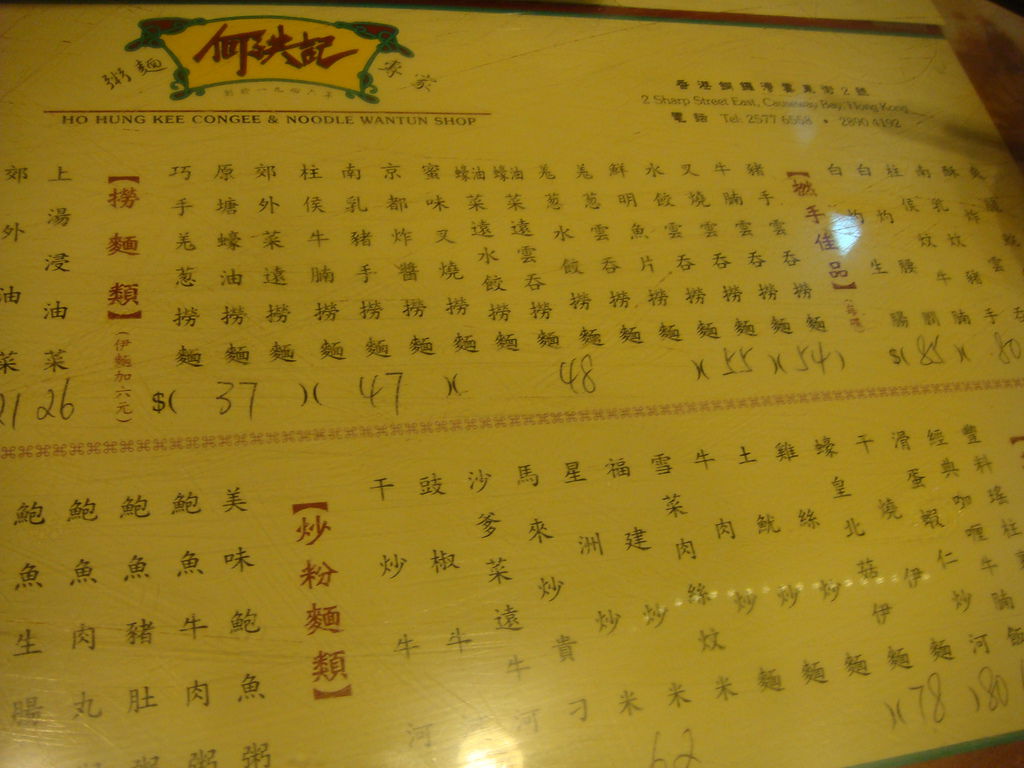 粥麵
何洪記
專家
創於一九四六年
HO HUNG KEE CONGEE & NOODLE WANTUN SHOP
香港銅鑼灣霎東街2號
2 Sharp Street East, Causeway Bay, Hong Kong
電話 Tel: 2577 6558 • 2890 4192
南乳炆豬手
柱侯炆牛腩
白灼腰膶
白灼生腸
【撚手佳品】
豬手雲吞撈麵
牛腩雲吞撈麵
叉燒雲吞撈麵
水餃雲吞撈麵
鮮明魚片撈麵
羌葱雲吞撈麵
羌葱水餃撈麵
蠔油菜遠雲吞撈麵
蠔油菜遠水餃撈麵
蜜味叉燒撈麵
京都炸醬撈麵
南乳豬手撈麵
柱侯牛腩撈麵
郊外菜遠撈麵
原塘蠔油撈麵
巧手羌葱撈麵
【撈麵類】(伊麵加六元)
上湯浸油菜
郊外油菜
21 26 $( 37 )( 47 )( 48 )( 55 )( 54 ) $( 85 )( 80
干燒伊麵
蠔皇北菇伊麵
雞絲炒麵
土魷炒麵
牛肉炒麵
雪菜肉絲炆米
福建炒米
星洲炒米
馬來炒貴刁
沙爹菜遠牛河
豉椒牛
干炒牛河
【炒粉麵類】
美味鮑魚粥
鮑魚牛肉粥
鮑魚豬肚粥
鮑魚肉丸
鮑魚生腸
62 )( 78 )( 80